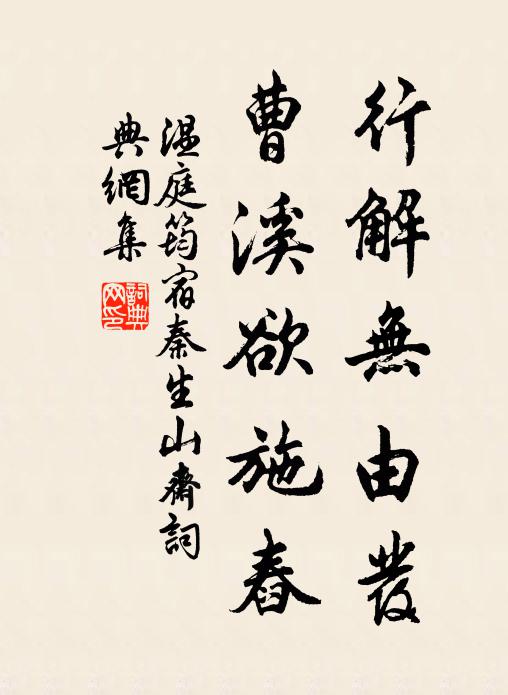 行解無由發
曹溪欲施舂
温庭筠宿秦生山齋詞
典網集
詞典网印